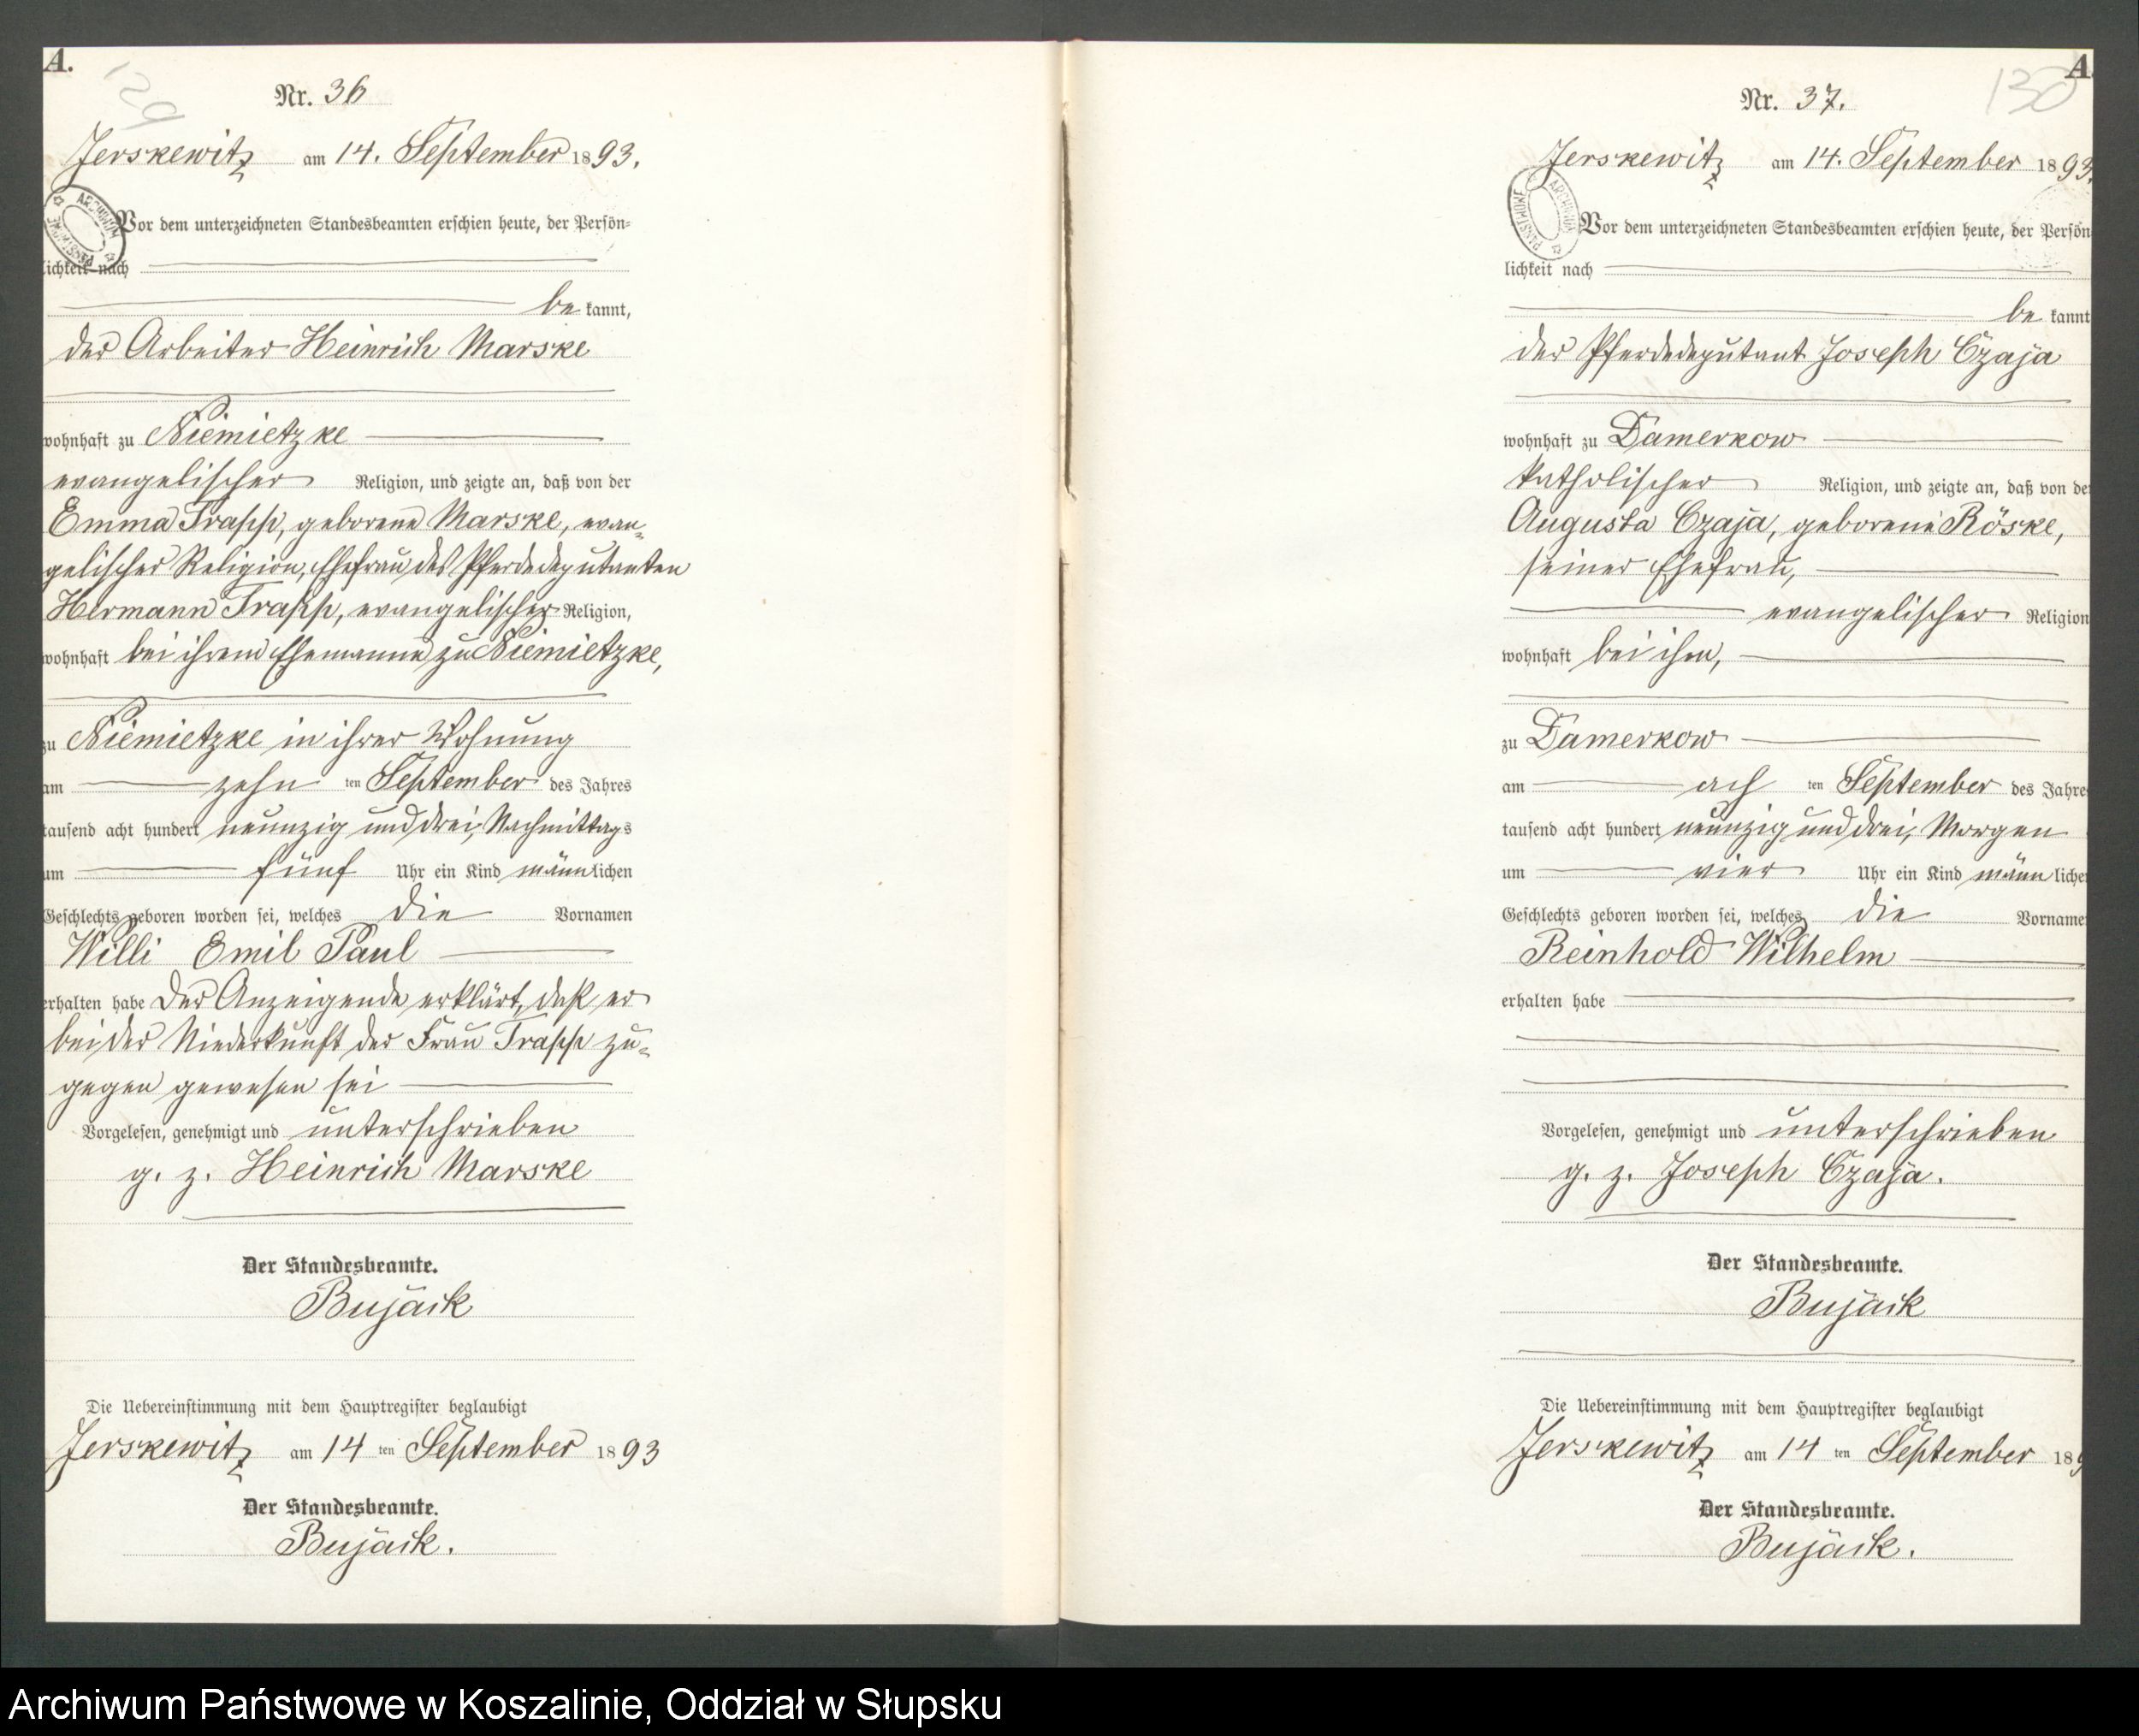 A.
129
Nr. 36
Jerskewitz am 14. September 1893.
ARCHIWUM PAŃSTWOWE
Vor dem unterzeichneten Standesbeamten erschien heute, der Persön-
lichkeit nach
be kannt,
der Arbeiter Heinrich Marske
wohnhaft zu Niemietzke
evangelischer Religion, und zeigte an, daß von der
Emma Trapp, geborene Marske, evan-
gelischer Religion, Ehefrau des Pferdedeputanten
Hermann Trapp, evangelischer Religion,
wohnhaft bei ihrem Ehemanne zu Niemietzke,
zu Niemietzke in ihrer Wohnung
am zehn ten September des Jahres
tausend acht hundert neunzig und drei, Nachmittags
um fünf Uhr ein Kind männlichen
Geschlechts geboren worden sei, welches die Vornamen
Willi Emil Paul
erhalten habe Der Anzeigende erklärt, daß er
bei der Niederkunft der Frau Trapp zu-
gegen gewesen sei
Vorgelesen, genehmigt und unterschrieben
g. z. Heinrich Marske
Der Standesbeamte.
Bujack
Die Uebereinstimmung mit dem Hauptregister beglaubigt
Jerskewitz am 14 ten September 1893
Der Standesbeamte.
Bujack.
A
130
Nr. 37.
Jerskewitz am 14. September 1893.
ARCHIWUM PAŃSTWOWE
Vor dem unterzeichneten Standesbeamten erschien heute, der Persön
lichkeit nach
be kannt
der Pferdedeputant Joseph Czaja
wohnhaft zu Damerkow
katholischer Religion, und zeigte an, daß von de
Augusta Czaja, geborene Röske,
seiner Ehefrau,
evangelischer Religion
wohnhaft bei ihm,
zu Damerkow
am ach ten September des Jahre
tausend acht hundert neunzig und drei, Morgen
um vier Uhr ein Kind männ liche
Geschlechts geboren worden sei, welches die Vorname
Reinhold Wilhelm
erhalten habe
Vorgelesen, genehmigt und unterschrieben
g. z. Joseph Czaja.
Der Standesbeamte.
Bujack
Die Uebereinstimmung mit dem Hauptregister beglaubigt
Jerskewitz am 14 ten September 189
Der Standesbeamte.
Bujack.
Archiwum Państwowe w Koszalinie, Oddział w Słupsku